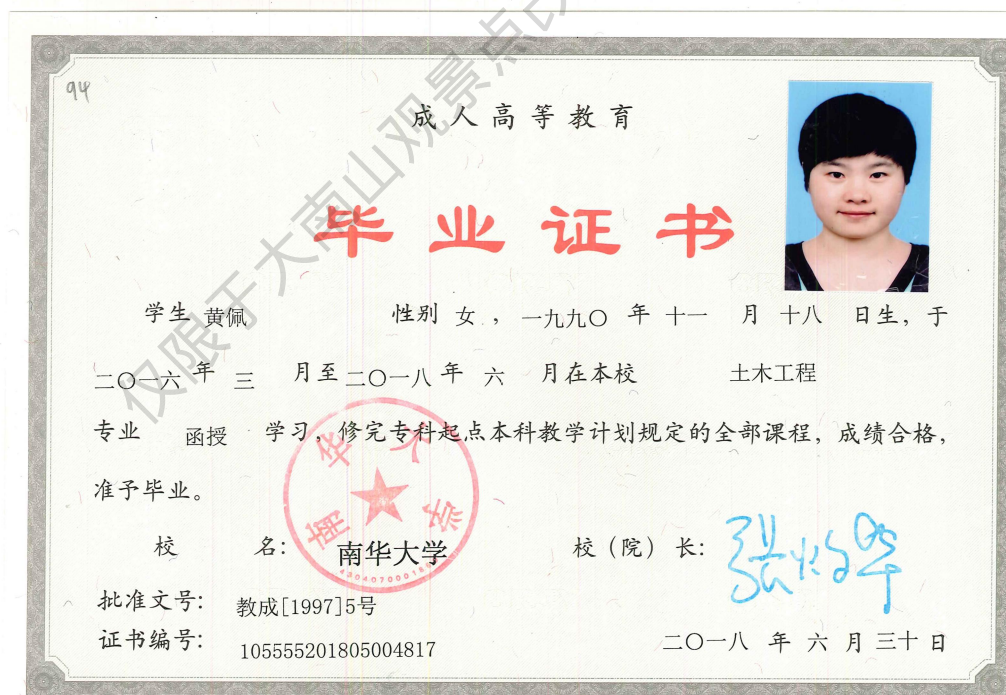 94
成人高等教育
毕业证书
学生 黄佩 性别 女 ， 一九九〇 年 十一 月 十八 日生，于
二〇一六 年 三 月至 二〇一八 年 六 月在本校 土木工程
专业 函授 学习，修完专科起点本科教学计划规定的全部课程，成绩合格，
准予毕业。
校 名： 南华大学 校（院）长：
批准文号： 教成[1997]5号
证书编号： 105555201805004817
二〇一八 年 六 月 三十 日
南华大学
仅限于大南山观景点